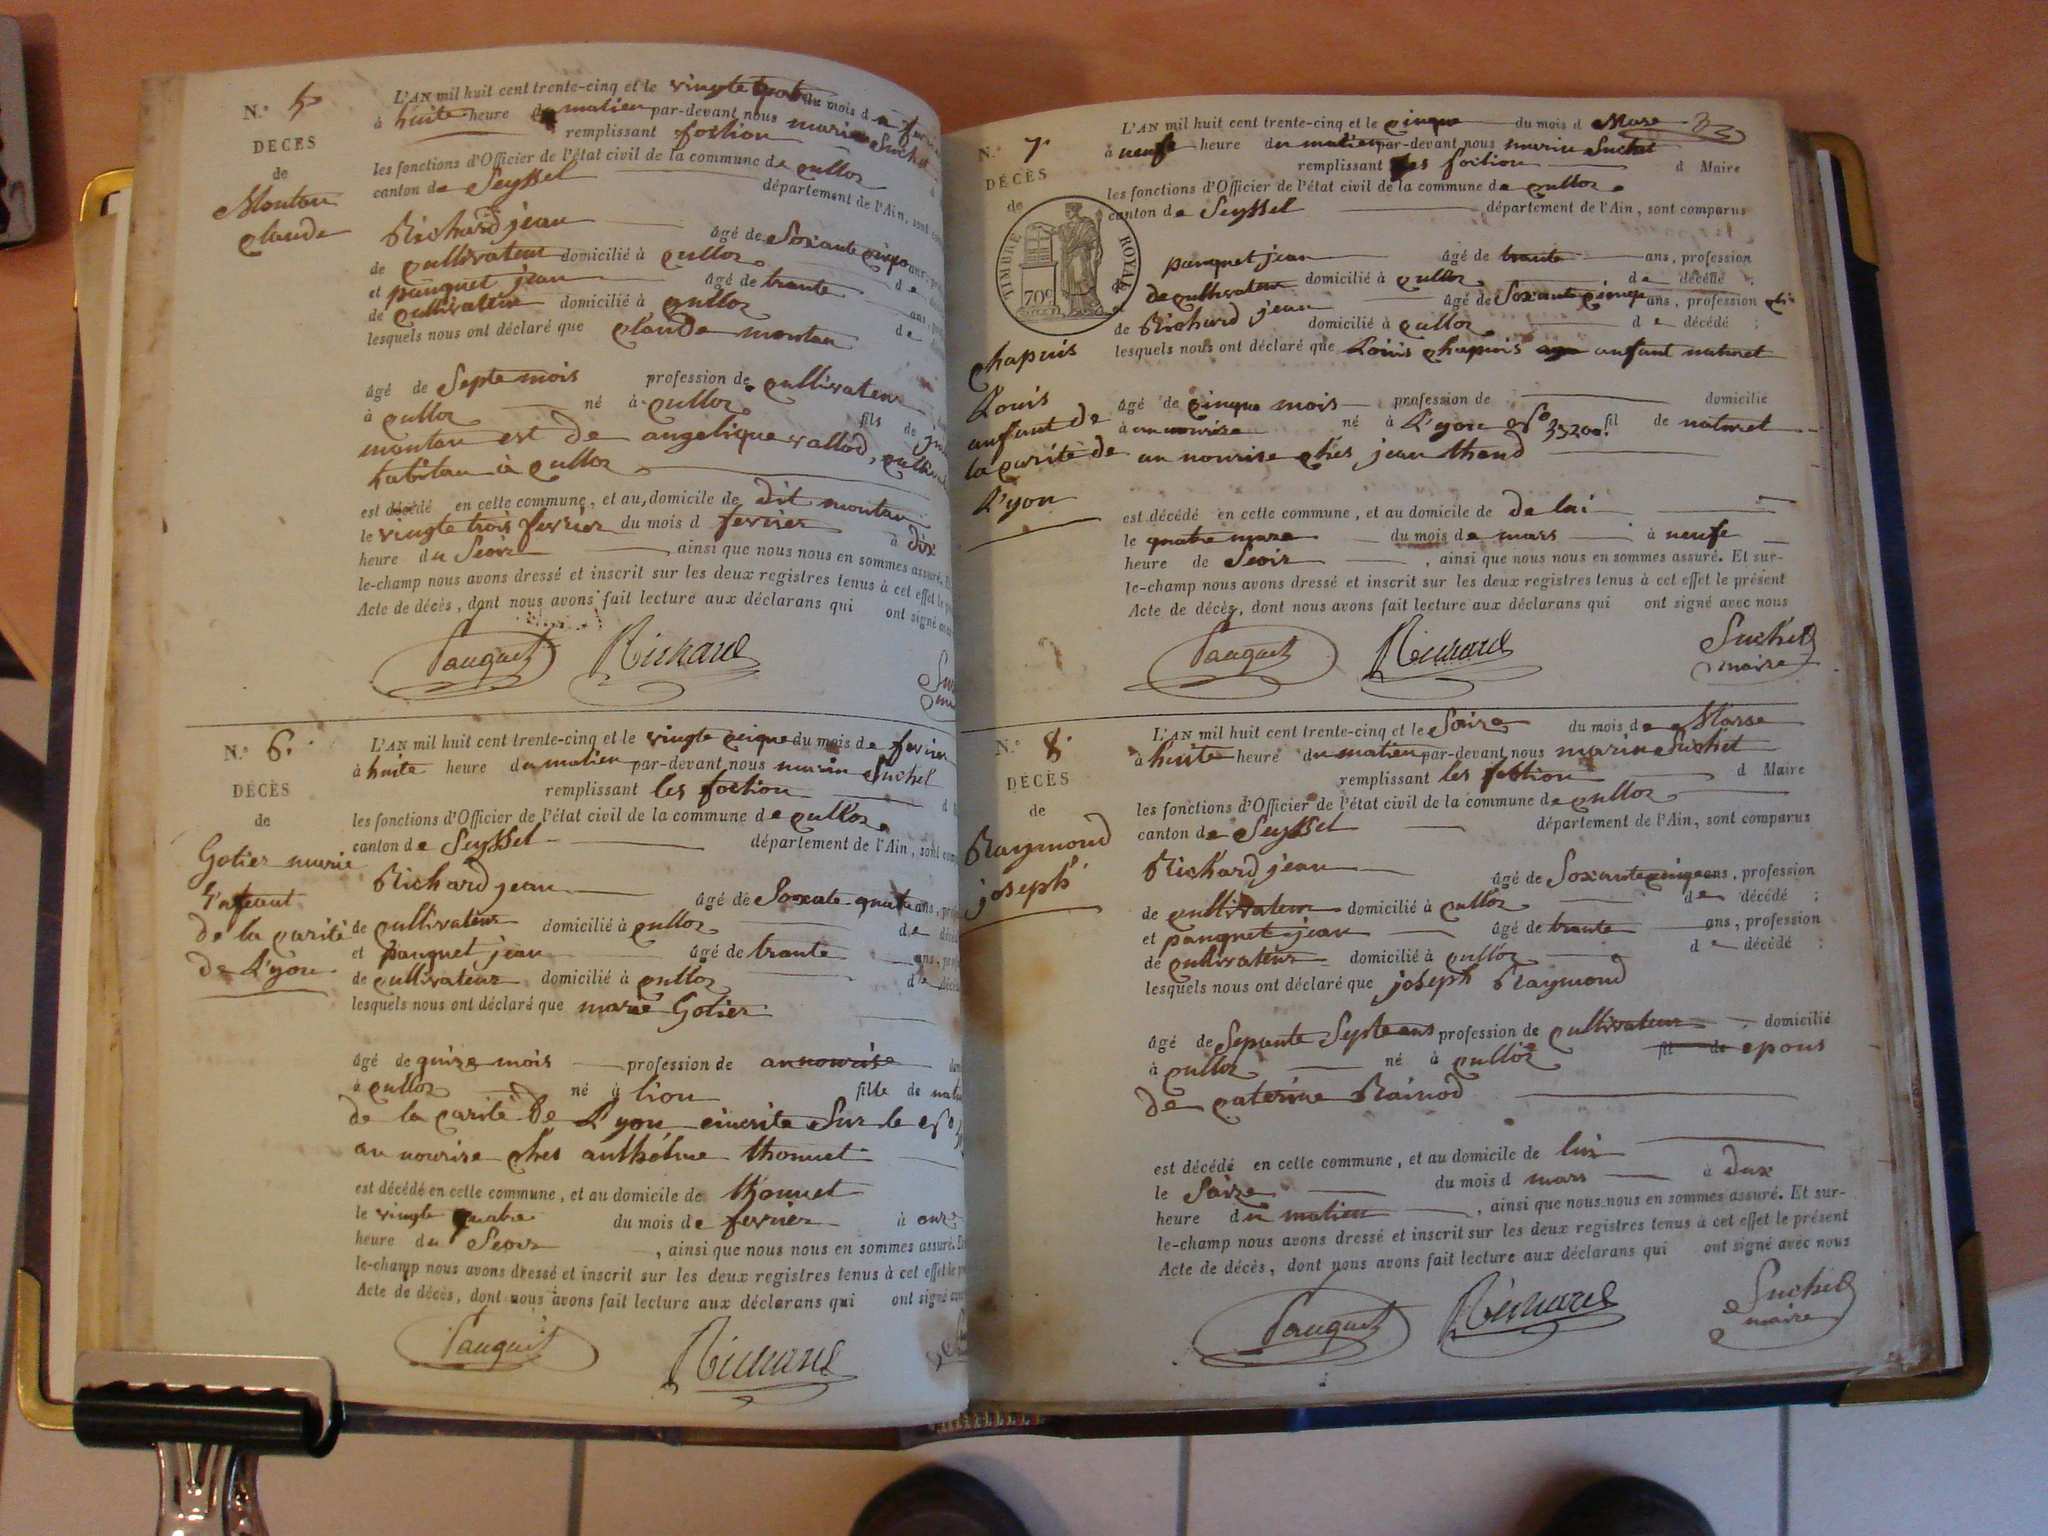 N.° 5
DÉCÈS
de
Montau
claude
L'AN mil huit cent trente-cinq et le vingte du mois d
à huite heure du matien par-devant nous marin Suchet
remplissant foction
les fonctions d'Officier de l'état civil de la commune de culloz
canton de Seyssel département de l'Ain, sont
Richard jean âgé de Soxante cinque ans
de cultivateur domicilié à culloz de
et pauquet jean âgé de trante ans
de cultivateur domicilié à culloz de
lesquels nous ont déclaré que claude montau
âgé de Septe mois profession de cultivateur
à culloz né à culloz fils de
montau est de angelique vallod,
habitan à culloz
est décédé en cette commune, et au domicile de dit montau
le vingte trois fevrier du mois d fevrier à dix
heure du Seoir , ainsi que nous nous en sommes assuré.
le-champ nous avons dressé et inscrit sur les deux registres tenus à cet effet le
Acte de décès, dont nous avons fait lecture aux déclarans qui ont signé
Pauquet Richard
N.° 6.
DÉCÈS
de
Gotier marie
de la carité
de L'yon
L'AN mil huit cent trente-cinq et le vingte cinque du mois de fevrier
à huite heure du matien par-devant nous marin Suchet
remplissant les foction
les fonctions d'Officier de l'état civil de la commune de culloz
canton de Seyssel département de l'Ain, sont
Richard jean âgé de Soxate quatre ans
de cultivateur domicilié à culloz de
et pauquet jean âgé de trante ans
de cultivateur domicilié à culloz de
lesquels nous ont déclaré que marie Gotier
âgé de quize mois profession de annourise
à culloz né à lion fille de
de la carité de L'yon eincrite Sur le
an nourise ches anthelme thonnet
est décédé en cette commune, et au domicile de thonnet
le vingte quatre du mois de fevrier à onze
heure du Seoir , ainsi que nous nous en sommes assuré.
le-champ nous avons dressé et inscrit sur les deux registres tenus à cet effet le
Acte de décès, dont nous avons fait lecture aux déclarans qui ont signé
Pauquet Richard
N.° 7.
DÉCÈS
de
TIMBRE ROYAL
70c
chapuis
Louis
anfant de
la carité de
L'yon
L'AN mil huit cent trente-cinq et le cinque du mois d Marse
à neufe heure du matien par-devant nous marin Suchet
remplissant les foction d Maire
les fonctions d'Officier de l'état civil de la commune de culloz
canton de Seyssel département de l'Ain, sont comparus
pauquet jean âgé de trante ans, profession
de cultivateur domicilié à culloz de décédé ;
âgé de Soxante cinque ans, profession
de Richard jean domicilié à culloz de décédé ;
lesquels nous ont déclaré que Louis chapuis anfant naturet
âgé de cinque mois profession de domicilié
à an nourise né à L'yon 33200. fil de naturet
an nourise ches jean thond
est décédé en cette commune, et au domicile de de lui
le quatre marse du mois de mars à neufe
heure de Seoir , ainsi que nous nous en sommes assuré. Et sur-
le-champ nous avons dressé et inscrit sur les deux registres tenus à cet effet le présent
Acte de décès, dont nous avons fait lecture aux déclarans qui ont signé avec nous
Pauquet Richard Suchet
maire
N.° 8.
DÉCÈS
de
Raymond
joseph
L'AN mil huit cent trente-cinq et le Saize du mois de Marse
à huite heure du matien par-devant nous marin Suchet
remplissant les foction d Maire
les fonctions d'Officier de l'état civil de la commune de culloz
canton de Seyssel département de l'Ain, sont comparus
Richard jean âgé de Soxante cinque ans, profession
de cultivateur domicilié à culloz de décédé ;
et pauquet jean âgé de trante ans, profession
de cultivateur domicilié à culloz de décédé ;
lesquels nous ont déclaré que joseph Raymond
âgé de Sepante Septe ans profession de cultivateur domicilié
à culloz né à culloz fil de epous
de caterine Rainod
est décédé en cette commune, et au domicile de lui
le Saize du mois d mars à dux
heure du matien , ainsi que nous nous en sommes assuré. Et sur-
le-champ nous avons dressé et inscrit sur les deux registres tenus à cet effet le présent
Acte de décès, dont nous avons fait lecture aux déclarans qui ont signé avec nous
Pauquet Richard Suchet
maire